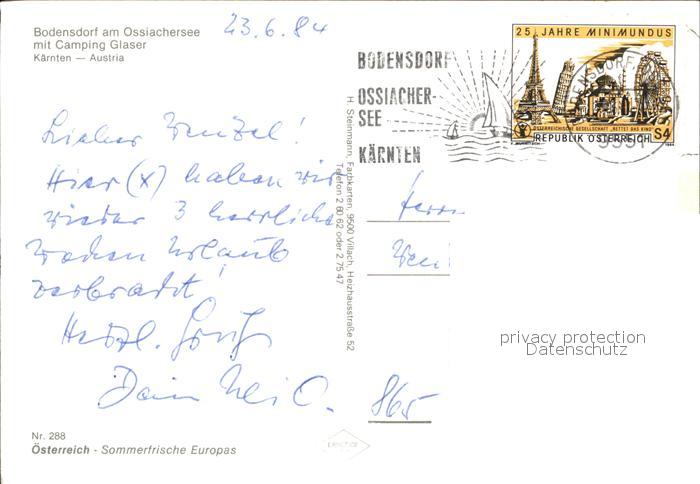 Bodensdorf am Ossiachersee
mit Camping Glaser
Kärnten — Austria
23.6.84
Lieber Wenzel!
Hier (x) haben wir
wieder 3 herrliche
Wochen Urlaub
verbracht!
Herzl. Grüße
Dein
Nr. 288
Österreich - Sommerfrische Europas
H. Steinmann, Farbkarten, 9500 Villach, Heizhausstraße 52
Telefon 2 60 62 oder 2 75 47
BODENSDORF
OSSIACHER-
SEE
KÄRNTEN
25 JAHRE MINIMUNDUS
ÖSTERREICHISCHE GESELLSCHAFT „RETTET DAS KIND"
REPUBLIK ÖSTERREICH S4
Herrn
865
privacy protection
Datenschutz